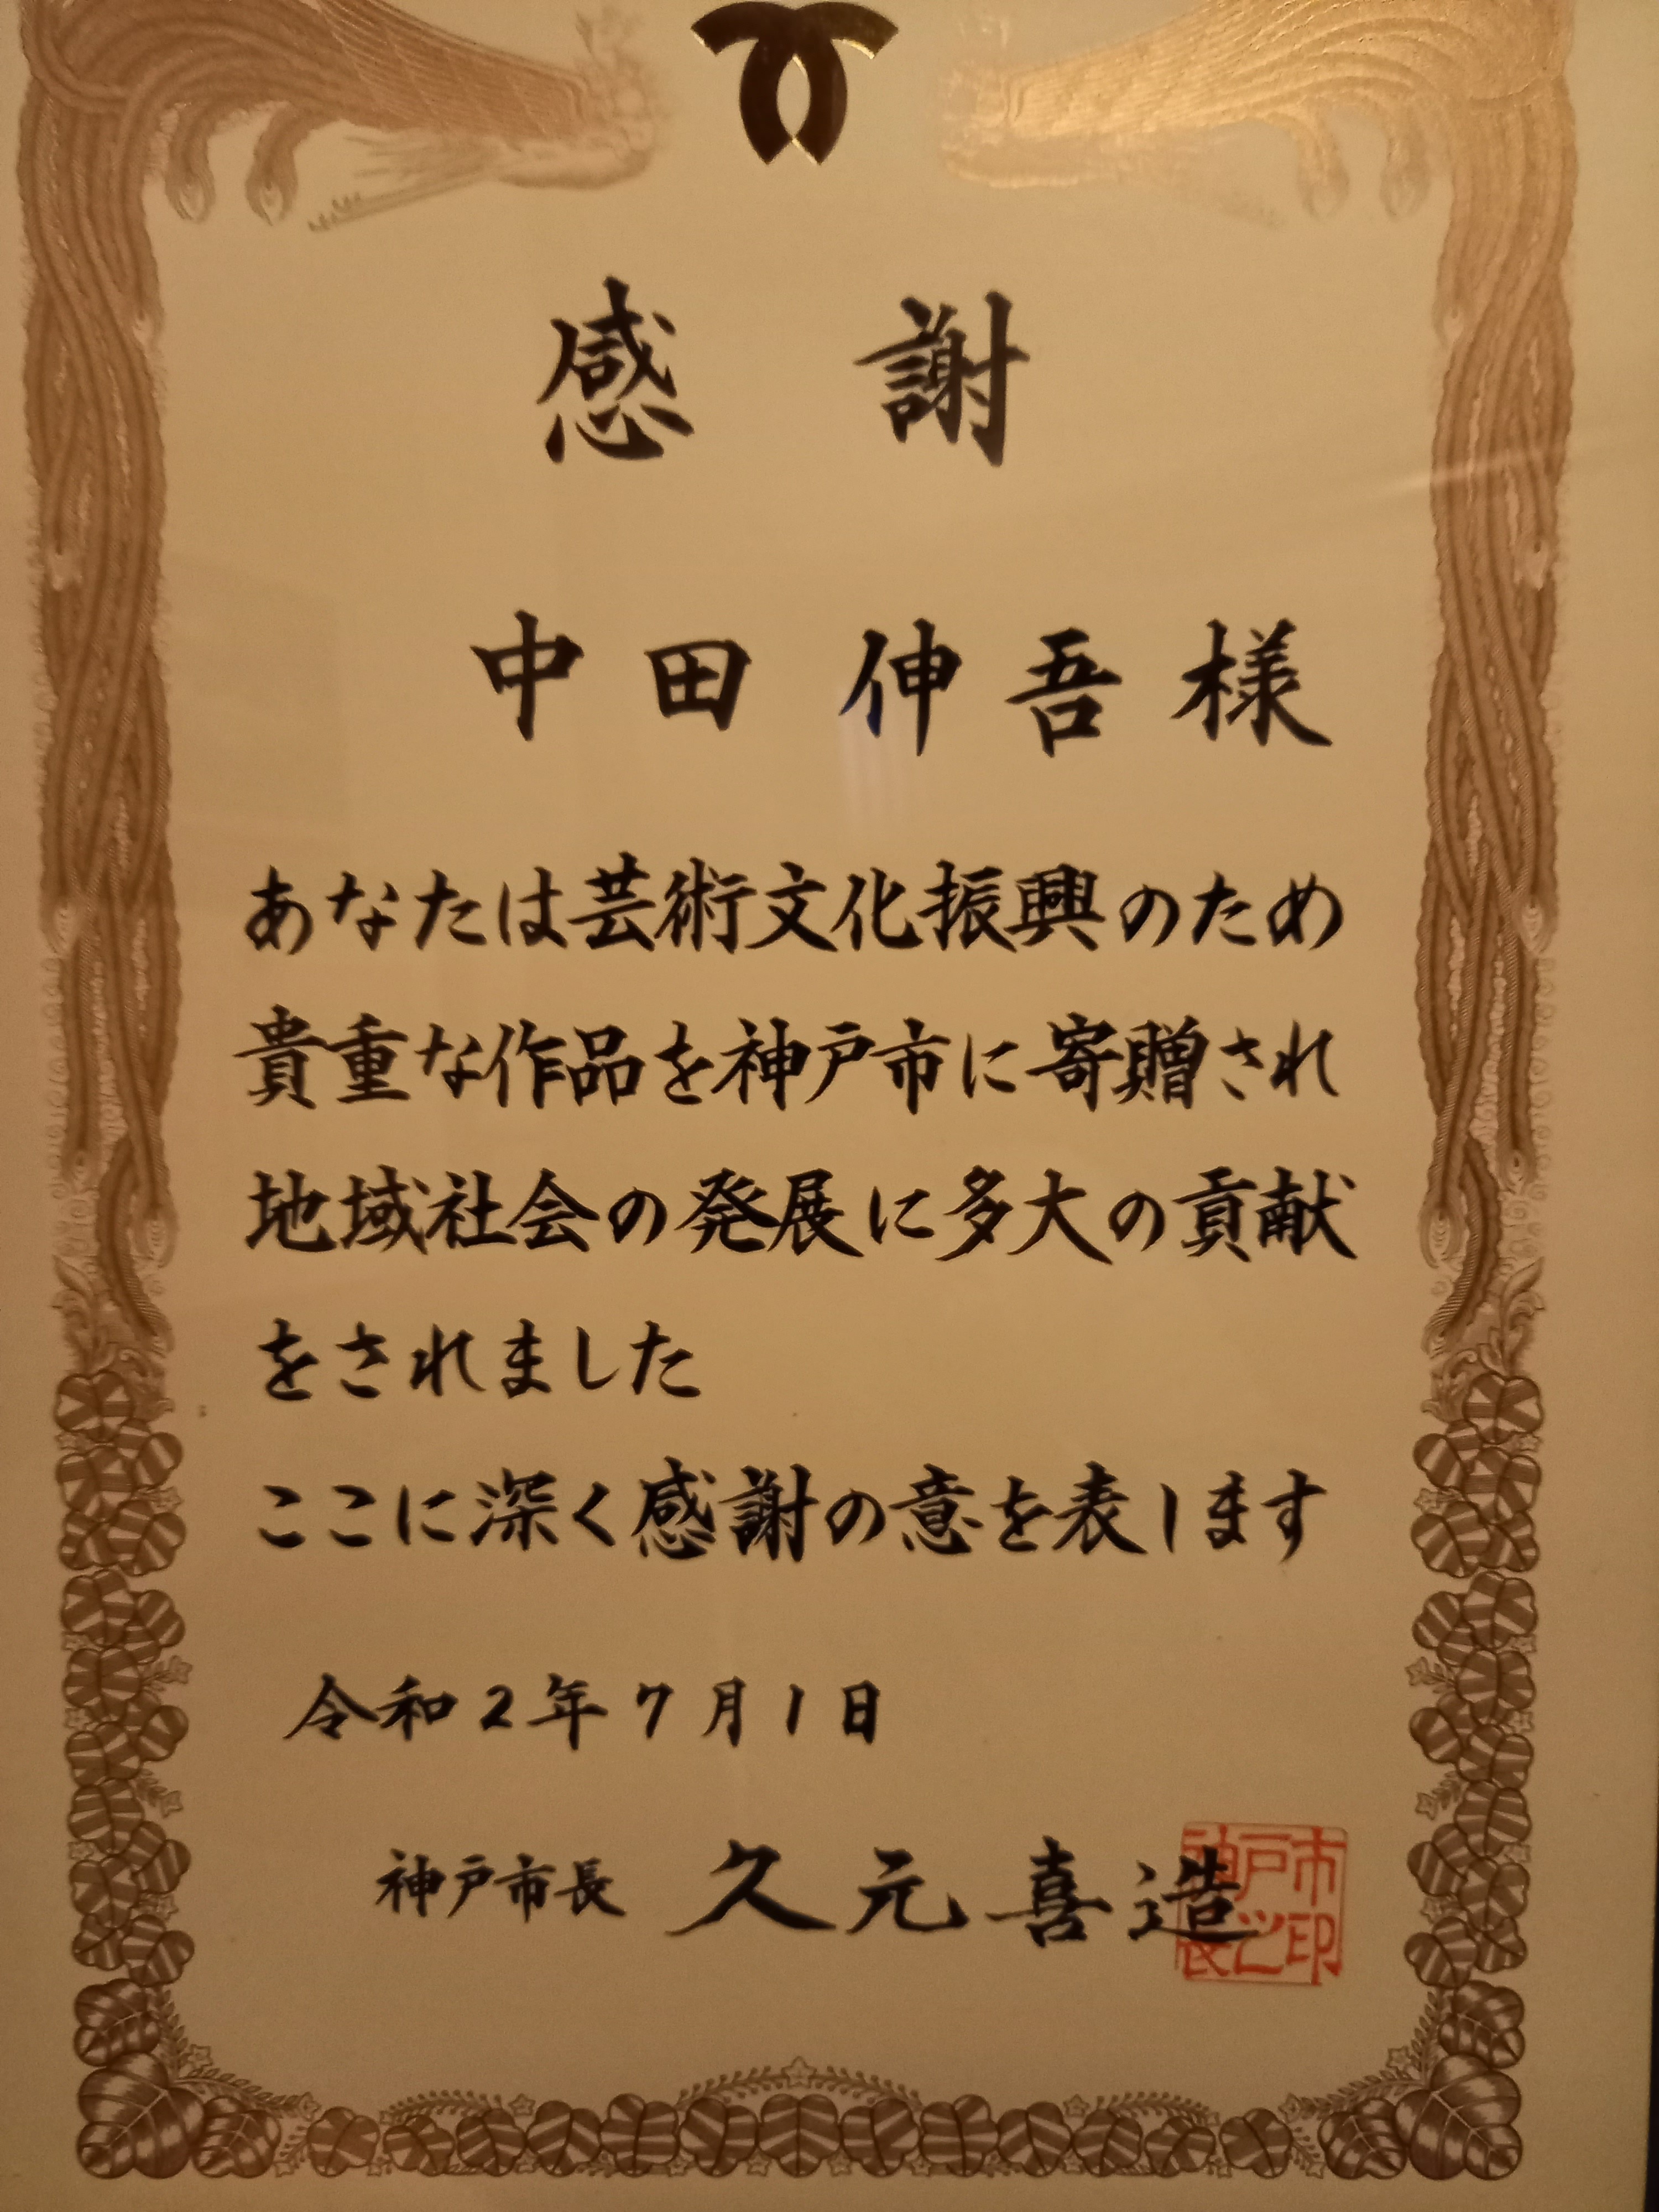 感謝
中田 伸吾様
あなたは芸術文化振興のため
貴重な作品を神戸市に寄贈され
地域社会の発展に多大の貢献
をされました
ここに深く感謝の意を表します
令和2年7月1日
神戸市長 久元喜造
神戸市
長之印